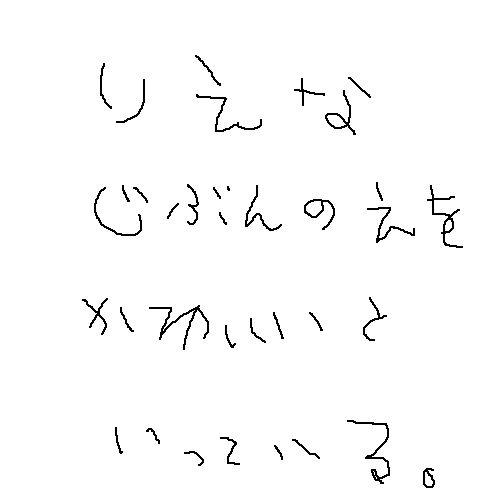 りえな
じぶんのえを
かわいいと
いっている。